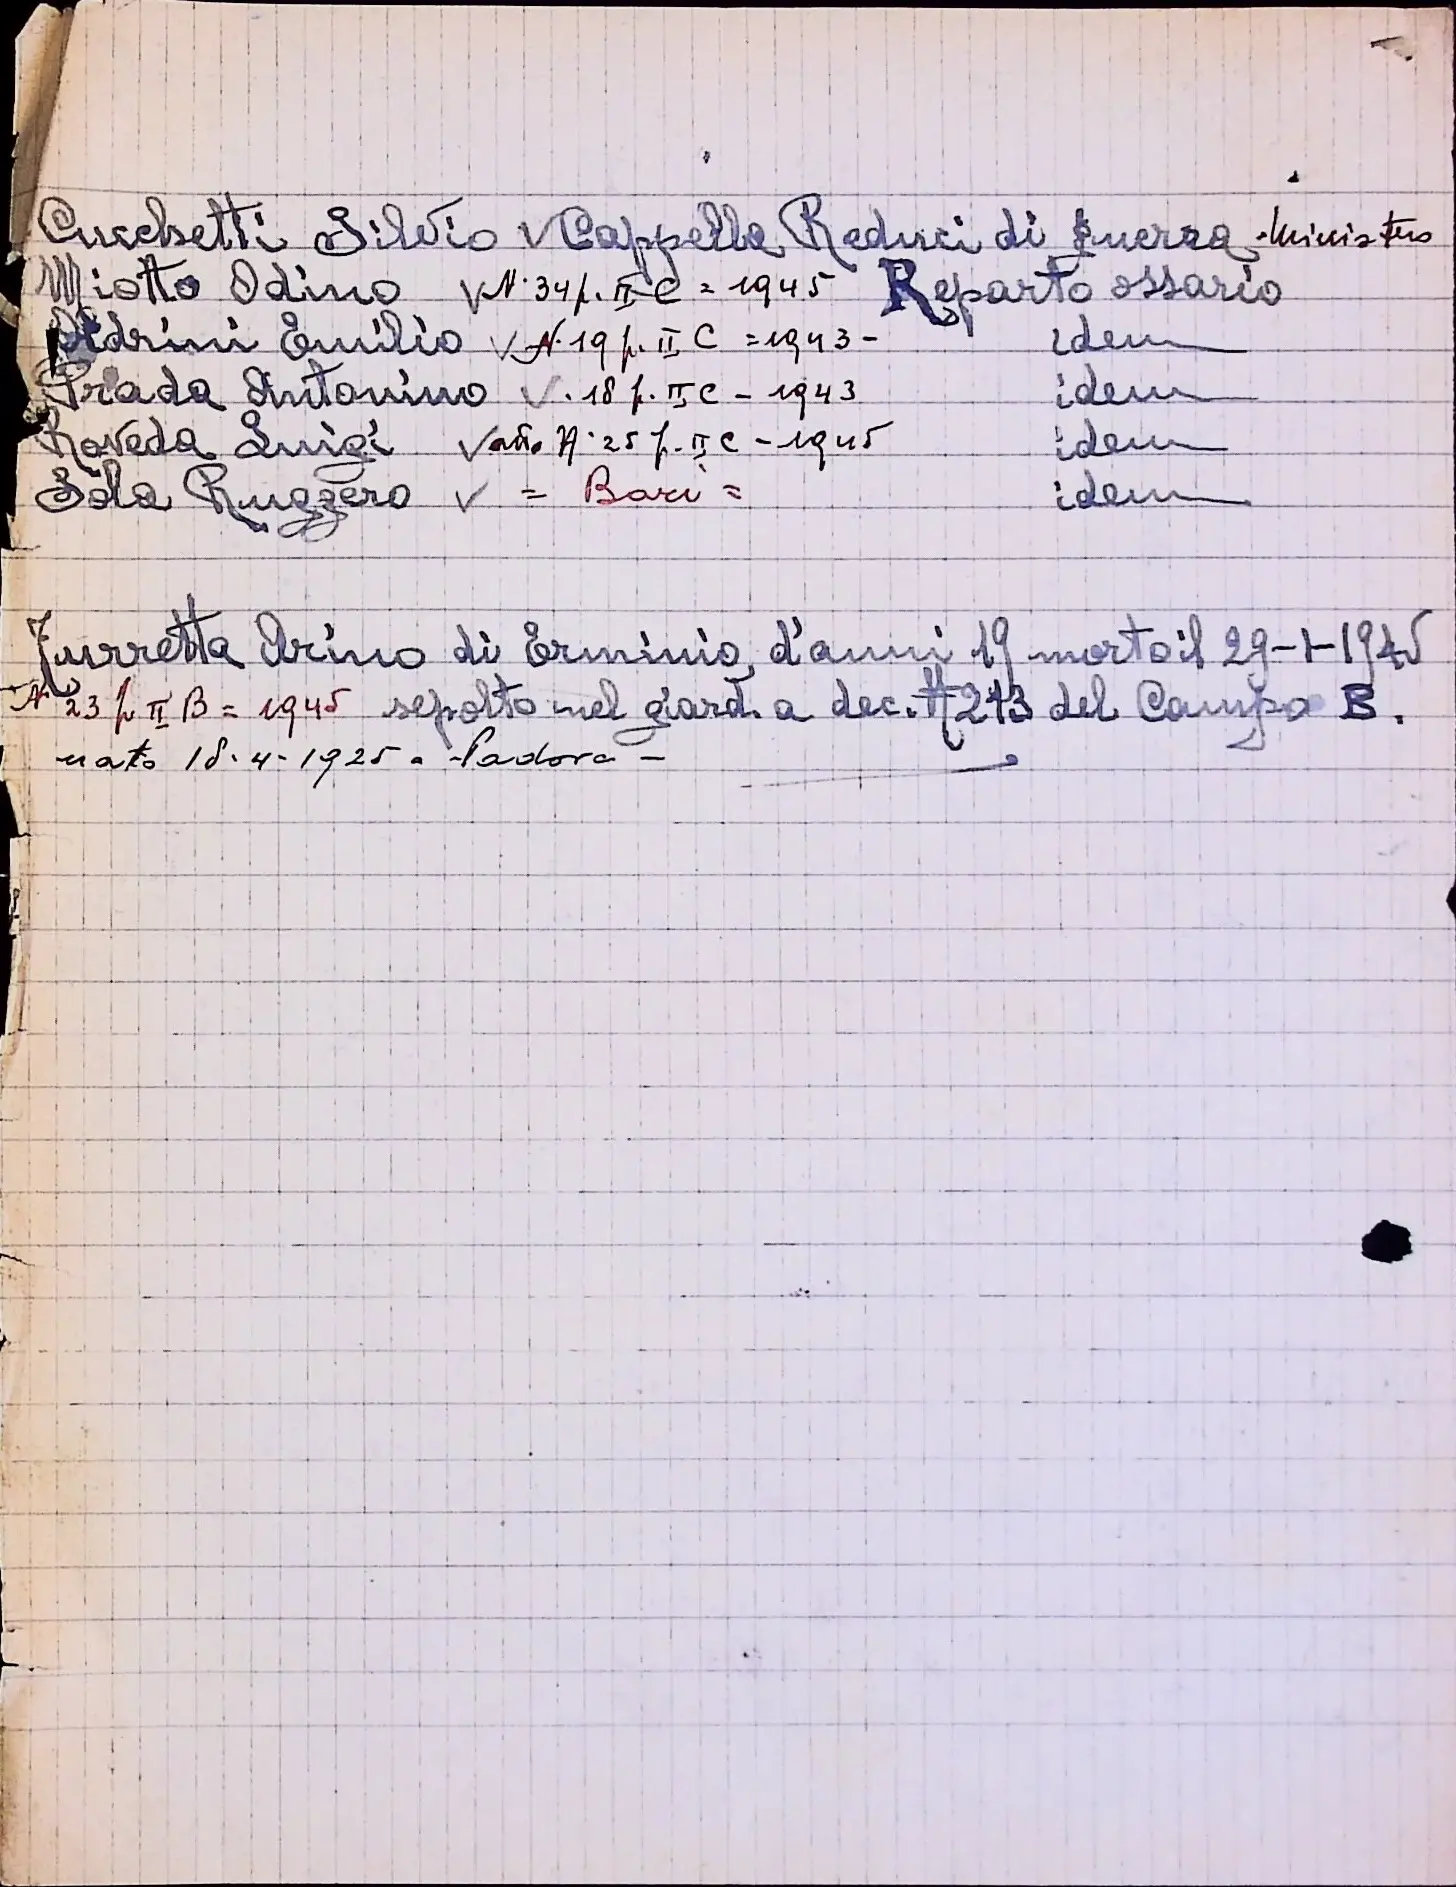 Cucchetti Silvio V Cappella Reduci di guerra - Ministero
Miotto Odino V N. 34 p. II C = 1945 Reparto ossario
Pedrini Emilio V N. 19 p. II C = 1943 - idem
Prada Antonino V. 18 p. II C - 1943 idem
Roveda Luigi V atto N. 25 p. II C - 1945 idem
Sola Ruggero V = Bari = idem
Turretta Orino di Erminio, d'anni 19 morto il 29-1-1945
N 23 p. II B = 1945 sepolto nel giard. a dec. N 213 del Campo B.
nato 18.4.1925 a Padova -